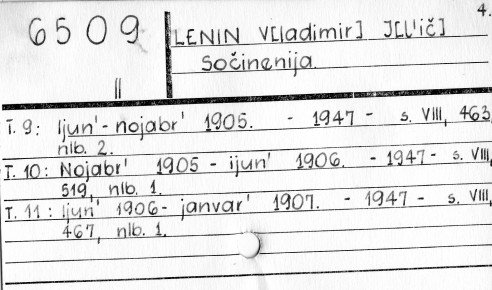 4.
6509 LENIN V[ladimir] J[l'ič]
II Sočinenija.
T. 9: Ijun'- nojabr' 1905. - 1947 - s. VIII, 463,
nlb. 2.
T. 10: Nojabr' 1905 - ijun' 1906. - 1947 - s. VIII,
519, nlb. 1.
T. 11: Ijun' 1906 - janvar' 1907. - 1947 - s. VIII,
467, nlb. 1.